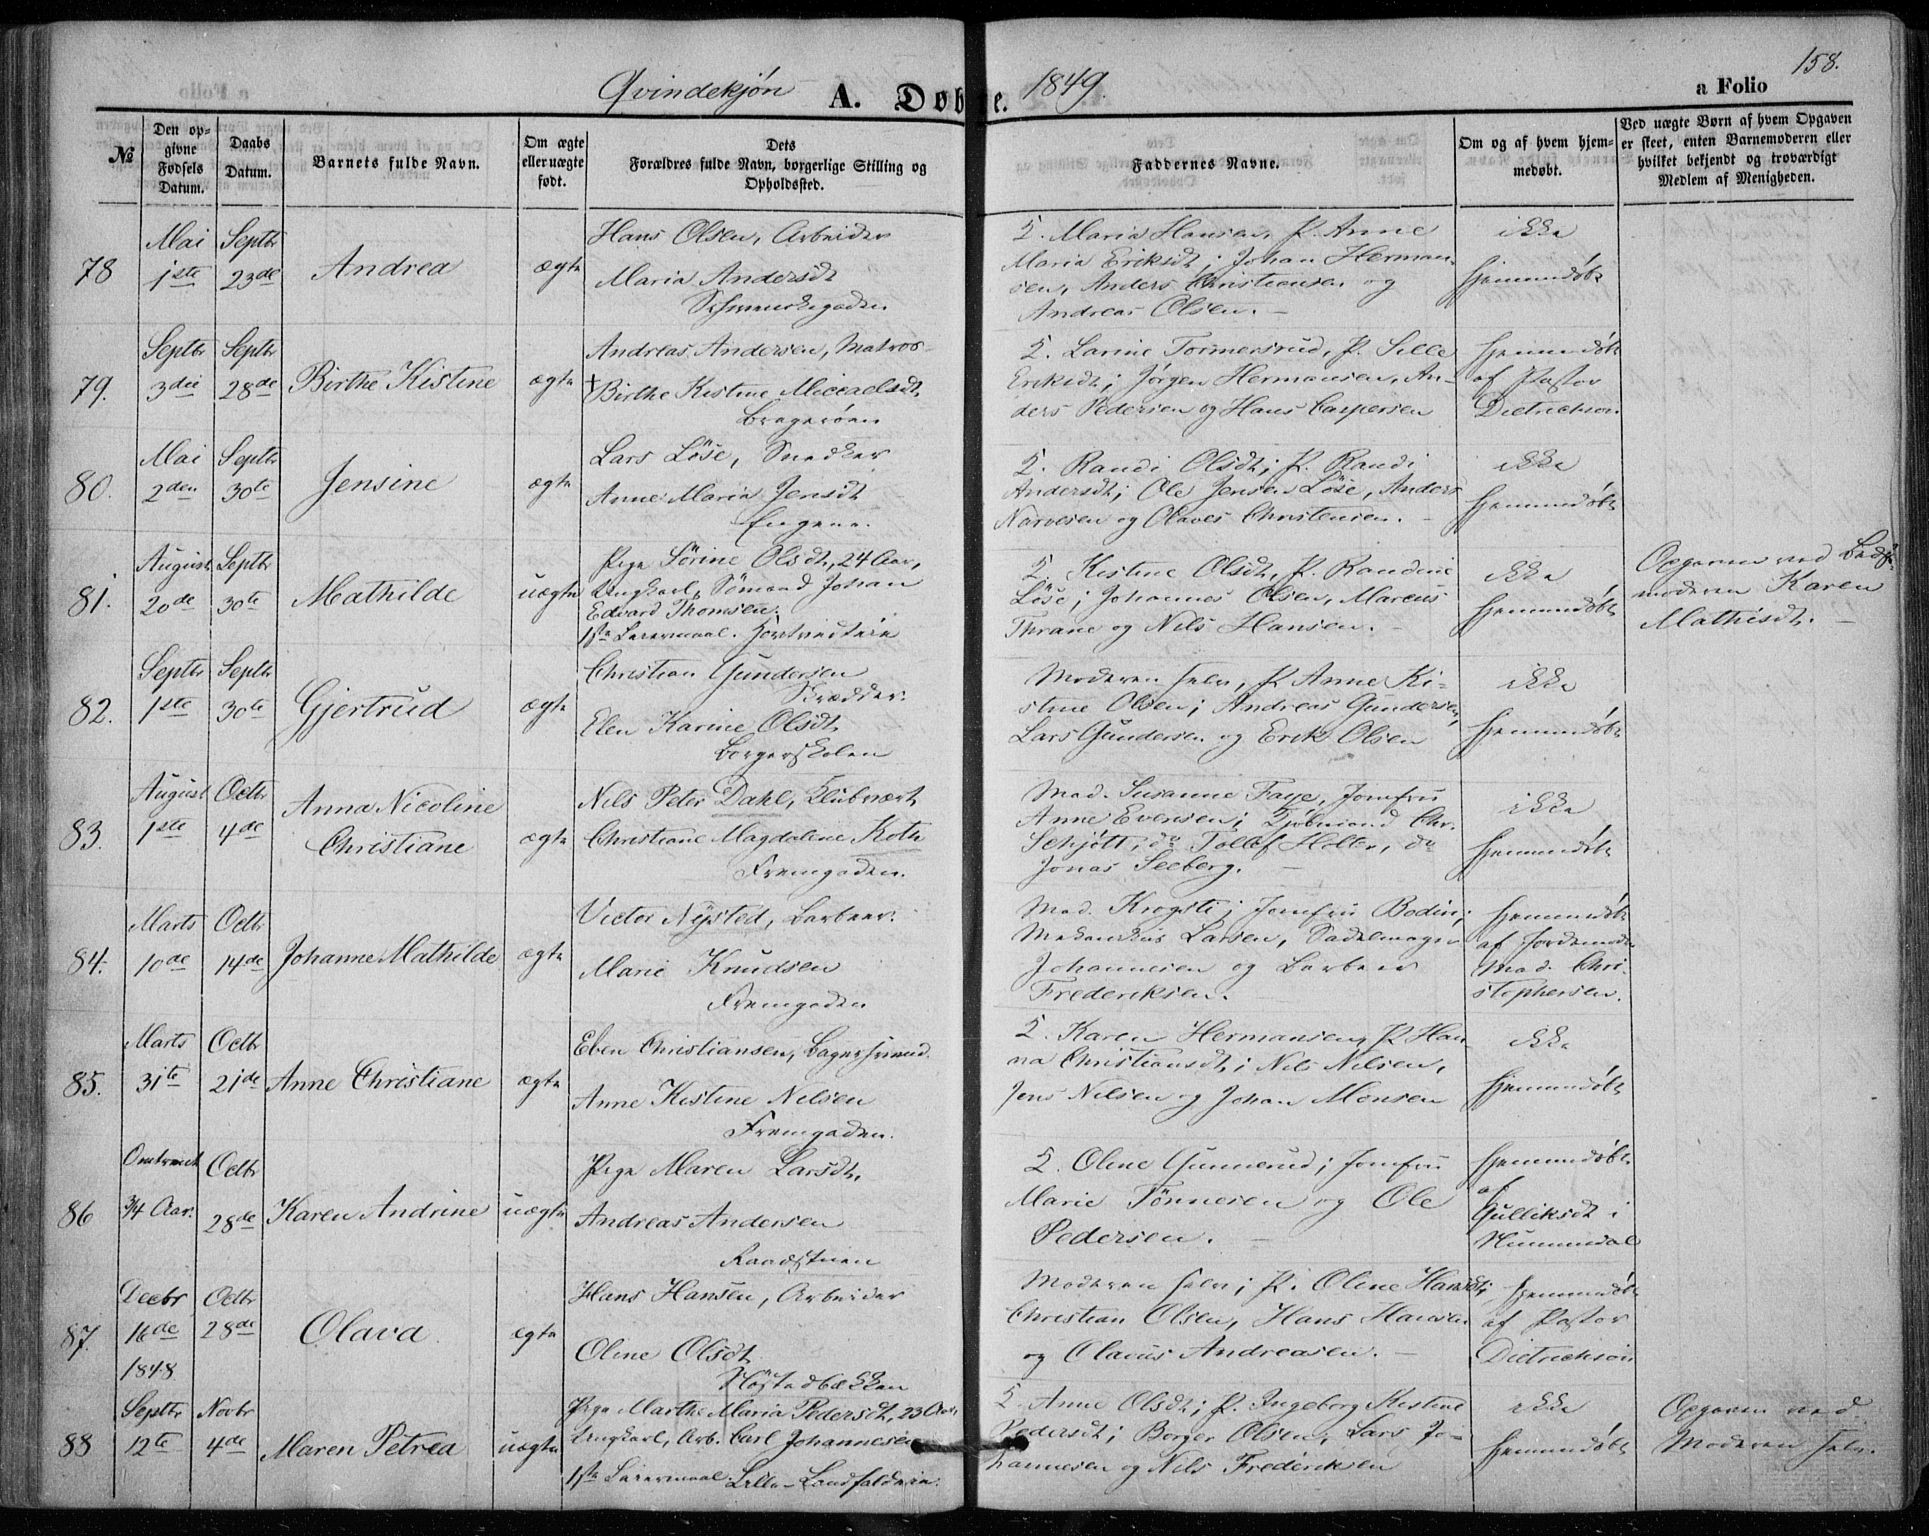 158.
Qvindekjøn A. Døbte. 1849.
a Folio
№
Den opgivne Fødsels Datum.
Daabs Datum.
Barnets fulde Navn.
Om ægte eller uægte født.
Dets Forældres fulde Navn, borgerlige Stilling og Opholdssted.
Faddernes Navne.
Om og af hvem hjemmedøbt.
Ved uægte Børn af hvem Opgaven er skeet, enten Barnemoderen eller hvilket bekjendt og troværdigt Medlem af Menigheden.
78
Mai 1ste
Septbr 23de
Andrea
ægte
Hans Olsen, Arbeider
Maria Andersdt
K. Maria Hansen, P. Anne
Maria Eriksdt; Johan Herman-
sen, Anders Christiansen og
Andreas Olsen.
ikke
hjemmedøbt
79.
Septbr 3die
Septbr 28de
Birthe Kistine
ægte
Andreas Andersen, Matros
† Birthe Kistine Micaelsdt
Bragerøen
K. Larine Tormersrud, P. Sille
Eriksdt; Jørgen Hermansen, An-
ders Pedersen og Hans Caspersen
hjemmedøbt
af Pastor
Dietrichson
80.
Mai 2den
Septbr 30te
Jensine
ægte
Lars Löse, Snedker
Anne Maria Jensdt
Engene.
K. Randi Olsdt; P. Randi
Andersdt; Ole Jensen Löse, Anders
Narvesen og Olaves Christensen.
ikke
hjemmedøbt
81.
August 20de
Septbr 30te
Mathilde
uægte
Pige Sörine Olsdt, 24 Aar,
Ungkarl, Sömand Johan
Edvard Thomsen.
1ste Leiermaal.
K. Kistine Olsdt, P. Randine
Löse; Johannes Olsen, Marcus
Thrane og Nils Hansen.
ikke
hjemmedøbt
Opgaven ved Bedste-
moderen Karen
Mathisdt.
82.
Septbr 1ste
Septbr 30te
Gjertrud
ægte
Christian Gundersen
Skrædder.
Elen Karine Olsdt
Borgerskolen
Moderen selv, P. Anne Ki-
stine Olsen; Andreas Gundersen,
Lars Gundersen og Erik Olsen
ikke
hjemmedøbt
83.
August 1ste
Octbr 4de
Anna Nicoline
Christiane
ægte
Nils Peter Dahl, Klubvært
Christiane Magdalene Koth
Fremgaden.
Mad. Susanne Faye, Jomfru
Anne Evensen; Kjøbmand Chr.
Schjøtt, do Tollef Holter, do
Jonas Seeberg.
ikke
hjemmedøbt
84.
Marts 10de
Octbr 14de
Johanne Mathilde
ægte
Victor Nysted, Barbeer.
Marie Knudsen
Fremgaden
Mad. Krogsti; Jomfru Bodin;
Mekanikus Larsen, Sadelmager
Johannesen og Barbeer
Frederiksen.
hjemmedøbt
af Jordemoder
Mad. Chri-
stophersen.
85.
Marts 31te
Octbr 21de
Anne Christiane
ægte
Eben Christiansen, Bagersvend.
Anne Kistine Nilsen
Fremgaden.
K. Karen Hermansen, P. Han-
na Christiansdt; Nils Nilsen,
Jens Nilsen og Johan Monsen
ikke
hjemmedøbt
86
Omtrent 3/4 Aar.
Octbr 28de
Karen Andrine
uægte
Pige Maren Larsdt,
Andreas Andersen
Raadstuen
K. Oline Gunnerud; Jomfru
Marie Tönnesen og Ole
Pedersen.
hjemmedøbt
af
Gulliksdt i
Nummedal
87.
Decbr 16de 1848
Octbr 28de
Olava
ægte
Hans Hansen, Arbeider
Oline Olsdt
Høstadbækken
Moderen selv; P. Oline Hansdt;
Christian Olsen, Hans Hansen
og Olavus Andreasen.
hjemmedøbt
af Pastor
Dietrichson
88
Septbr 12te
Novbr 4de
Maren Petrea
uægte
Pige Marthe Maria Pedersdt, 23 Aar,
Ungkarl, Arb. Carl Johannesen
1ste Leiermaal.
K. Anne Olsdt; P. Ingeborg Kistine
Pedersdt; Borger Olsen, Lars Jo-
hannesen og Nils Frederiksen
ikke
hjemmedøbt
Opgaven ved
Moderen selv.